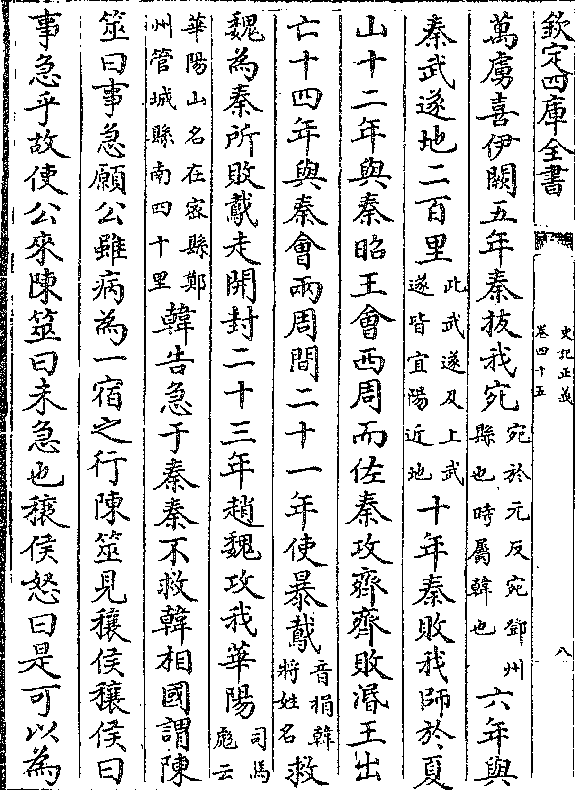 欽定四庫全書
史記正義
卷四十五
八
萬虜喜伊闕五年秦拔我宛宛於元反宛鄧州縣也時屬韓也六年與
秦武遂地二百里此武遂及上武遂皆宜陽近地十年秦敗我師於夏
山十二年與秦昭王會西周而佐秦攻齊齊敗湣王出
亡十四年與秦會兩周間二十一年使暴鳶音捐韓將姓名救
魏為秦所敗鳶走開封二十三年趙魏攻我華陽司馬彪云
華陽山名在密縣鄭州管城縣南四十里韓告急于秦秦不救韓相國謂陳
筮曰事急願公雖病為一宿之行陳筮見穰侯穰侯曰
事急乎故使公來陳筮曰未急也穰侯怒曰是可以為